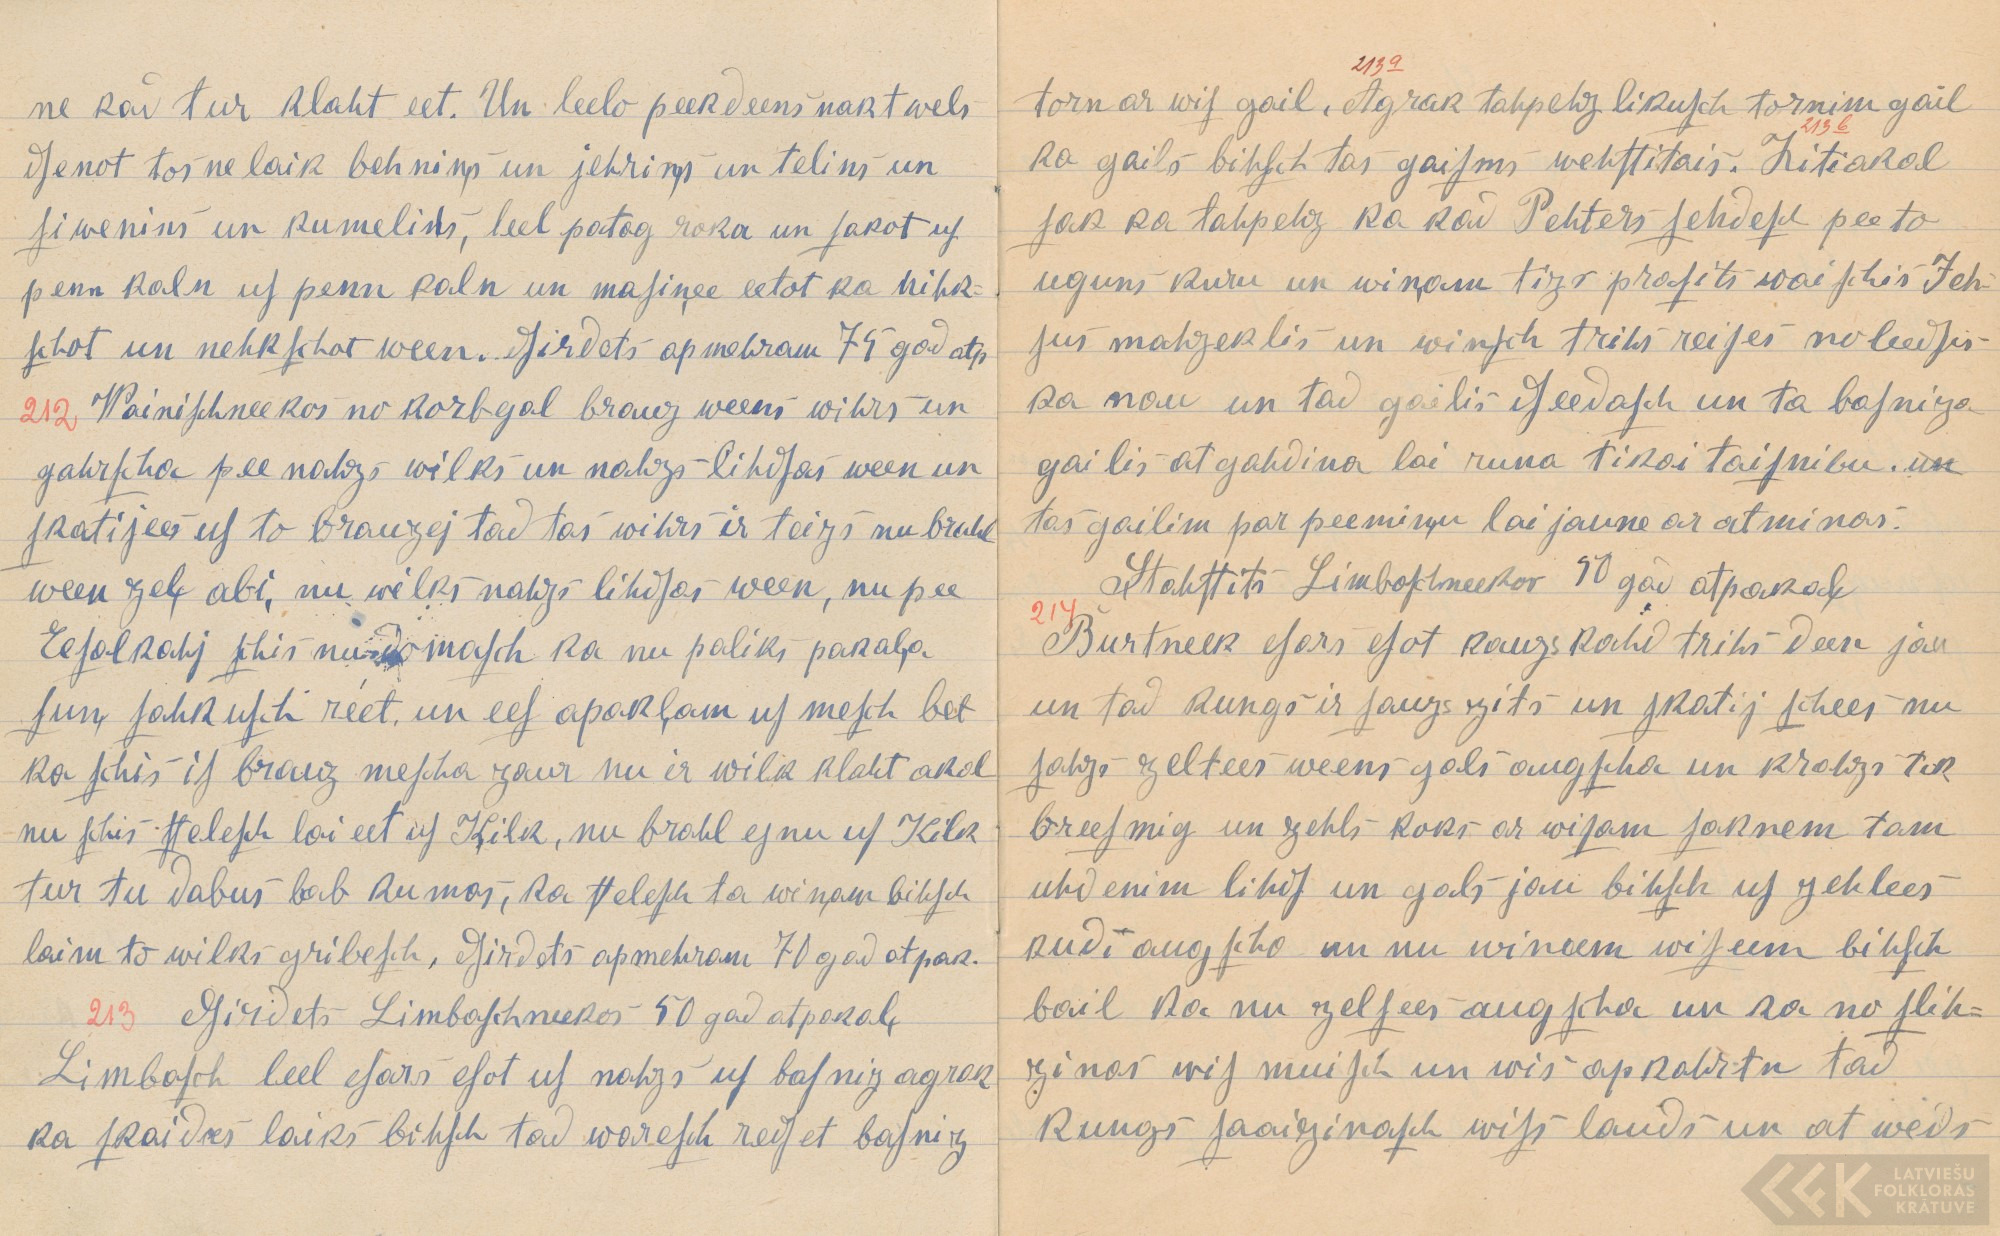 ne kad tur klaht eet. Un leelo peekdeens nakt wels
dſenot tos ne laik behniņs un jehriņs un telins un
ſiwenins un kumelins, leel patag roka un ſakot uſ
penn kaln uſ penn kaln un maſiņee eetot ka nihk=
ſchot un nehkſchot ween. dſirdets apmehram 75 gad atp
212 Wainiſchneekos no korbgal brauz weens wihrs un
gahrſcha pee nahzs wilks un nahzs lihdſas ween un
ſkatijees uſ to brauzej tad tas wihrs ir teizs nu brahl
ween zeļ abi, nu wilks nahzs lihdſas ween, nu pee
Eeſalkahj ſchis nu domaſch ka nu paliks pakaļa
ſuņ ſahkuſch réet. un eeſ apakļam uſ meſch bet
ka ſchis iſ brauz meſcha zaur nu ir wilk klaht akal
nu ſchis ſteleſch lai eet uſ Ķilk, nu brahl ej nu uſ Kilk
tur tu dabus lab kumos, ka ſteleſch ta wiņam bihſch
laim to wilks gribeſch, dſirdets apmehram 70 gad atpak.
213 Dſirdets Limbaſchneekos 50 gad atpakaļ
Limbaſch leel eſars eſot uſ nahzs uſ baſniz agrak
ka ſkaidrs laiks bihſch tad wareſch redſet baſniz
213a
torn ar wiſ gail. Agrak tahpehz likuſch tornim gail
213b
ka gails bihſch tas gaiſms wehſtitais. Zitiakal
ſak ka tahpehz ka kad Pehters ſehdeſch pee to
uguns kuru un wiņam tizs praſits wai ſchis Jeh-
ſus mahzeklis un winſch trihs reiſes noleedſis
ka nau un tad gailis dſeedaſch un ta baſniza
gailis atgahdina lai runa tikai taiſnibu. un
tas gailim par peemiņu lai jaune ar atminas.
Stahſtits Limbaſchneekos 50 gad atpakaļ
214
Burtneek eſars eſot kauzs kahd trihs deen jau
un tad kungs ir ſauzs zits un ſkatij ſchees nu
ſahzs zeltees weens gals augſcha un krahzs tik
breeſmig un zehls koks ar wiſam ſaknem tam
uhdenim lihdſ un gals jau bihſch uſ zehlees
kudi augſcha un nu wineem wiſeem bihſch
bail ka nu zelſees augſcha un ka no ſlih=
zinas wiſ muiſch un wis apkahrtn tad
kungs ſaaizinaſch wiſs lauds un at weds
LATVIEŠU
FOLKLORAS
KRĀTUVE